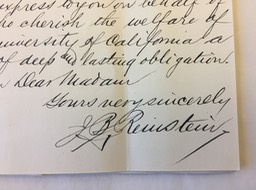 express to you on behalf of
ho cherish the welfare of
university of California a
of deep and lasting obligation.
Dear Madam
Yours very sincerely
J. B. Reinstein.